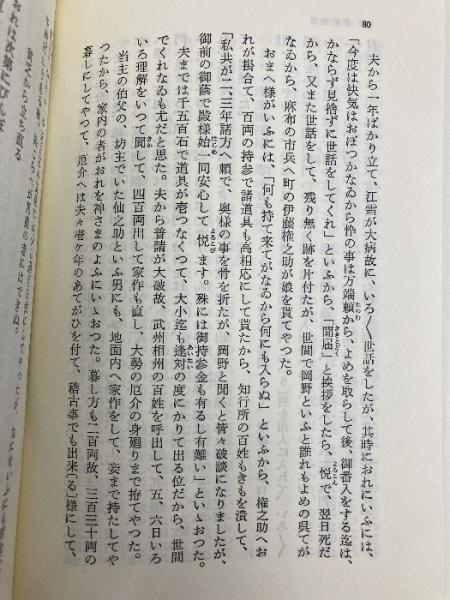 80
夫から一年ばかり立て、江雪が大病故に、いろ〳〵世話をしたが、其時におれにいふには、
「今度は快気はおぼつかなゐから忰の事は万端頼から、よめを取らして後、御番入をする迄は、
かならず見捨ずに世話をしてくれ」といふから、「聞届」と挨拶をしたら、悦で、翌日死だ
から、又また世話をして、残り無く跡を片付たが、世間で岡野といふと誰れもよめの呉てが
なゐから、麻布の市兵へ町の伊藤権之助が娘を貰てやつた。
おまへ様がいふには、「何も持て来てがなゐから何にも入らぬ」といふから、権之助へお
れが掛合て、百両の持参で諸道具も高相応にして貰たから、知行所の百姓もきもを潰して、
「私共が二、三年諸方へ頼で、奥様の事を骨を折たが、岡野と聞くと皆々破談になりましたが、
御前の御蔭で殿様始一同安心して悦ます。殊には御持参金も有るし有難い」といゝおつた。
夫までは千五百石で道具が壱つなくつて、大小迄も逢対の度にかりて出る位だから、世間
でくれなゐも尤だと思た。夫から普請が大破故、武州相州の百姓を呼出して、五、六日いろ
いろ理解をいつて聞して、四百両出して家作も直し、大勢の厄介の身廻りまで拵てやつた。
当主の伯父の、坊主でいた仙之助といふ男にも、地面内へ家作をして、妾まで持たしてや
つたから、家内の者がおれを神さまのよふにいゝおつた。暮し方も二百両故、三百三十両の
暮しにしてやつて、厄介へは夫々壱ケ年のあてがひを付て、稽古事でも出来〔る〕様にして、